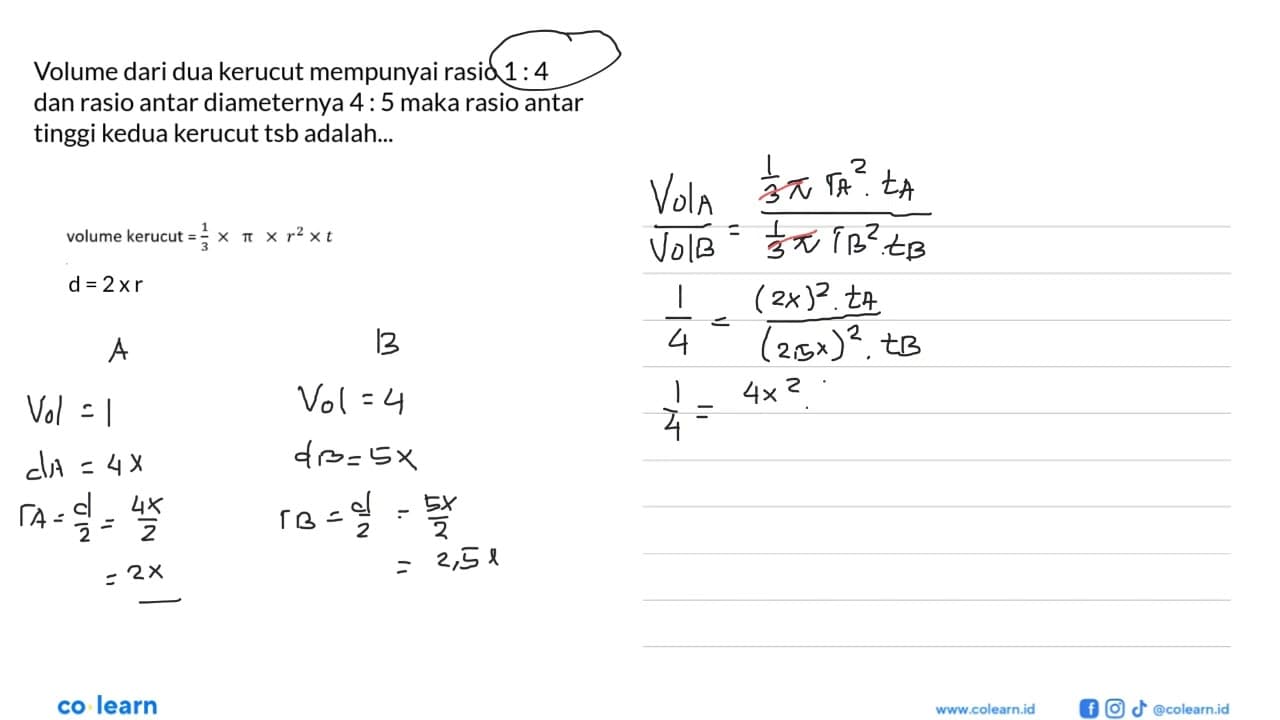 Volume dari dua kerucut mempunyai rasio 1 : 4
dan rasio antar diameternya 4 : 5 maka rasio antar
tinggi kedua kerucut tsb adalah...
volume kerucut = 1/3 × π × r² × t
d = 2 x r
A
Vol = 1
dA = 4x
rA = d/2 = 4x/2
= 2x
B
Vol = 4
dB = 5x
rB = d/2 = 5x/2
= 2,5x
VolA/VolB = 1/3 π rA². tA / 1/3 π rB². tB
1/4 = (2x)². tA / (2,5x)². tB
1/4 = 4x².
co learn
www.colearn.id
@colearn.id